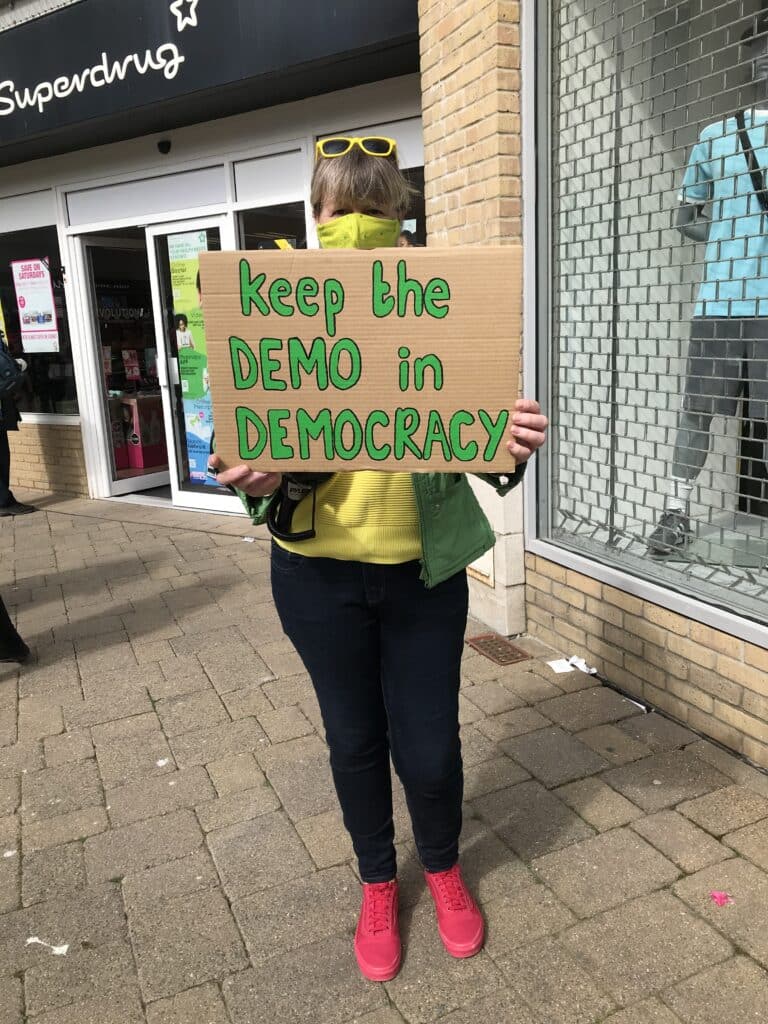 Superdrug
SAVE ON
SATURDAYS
keep the
DEMO in
DEMOCRACY